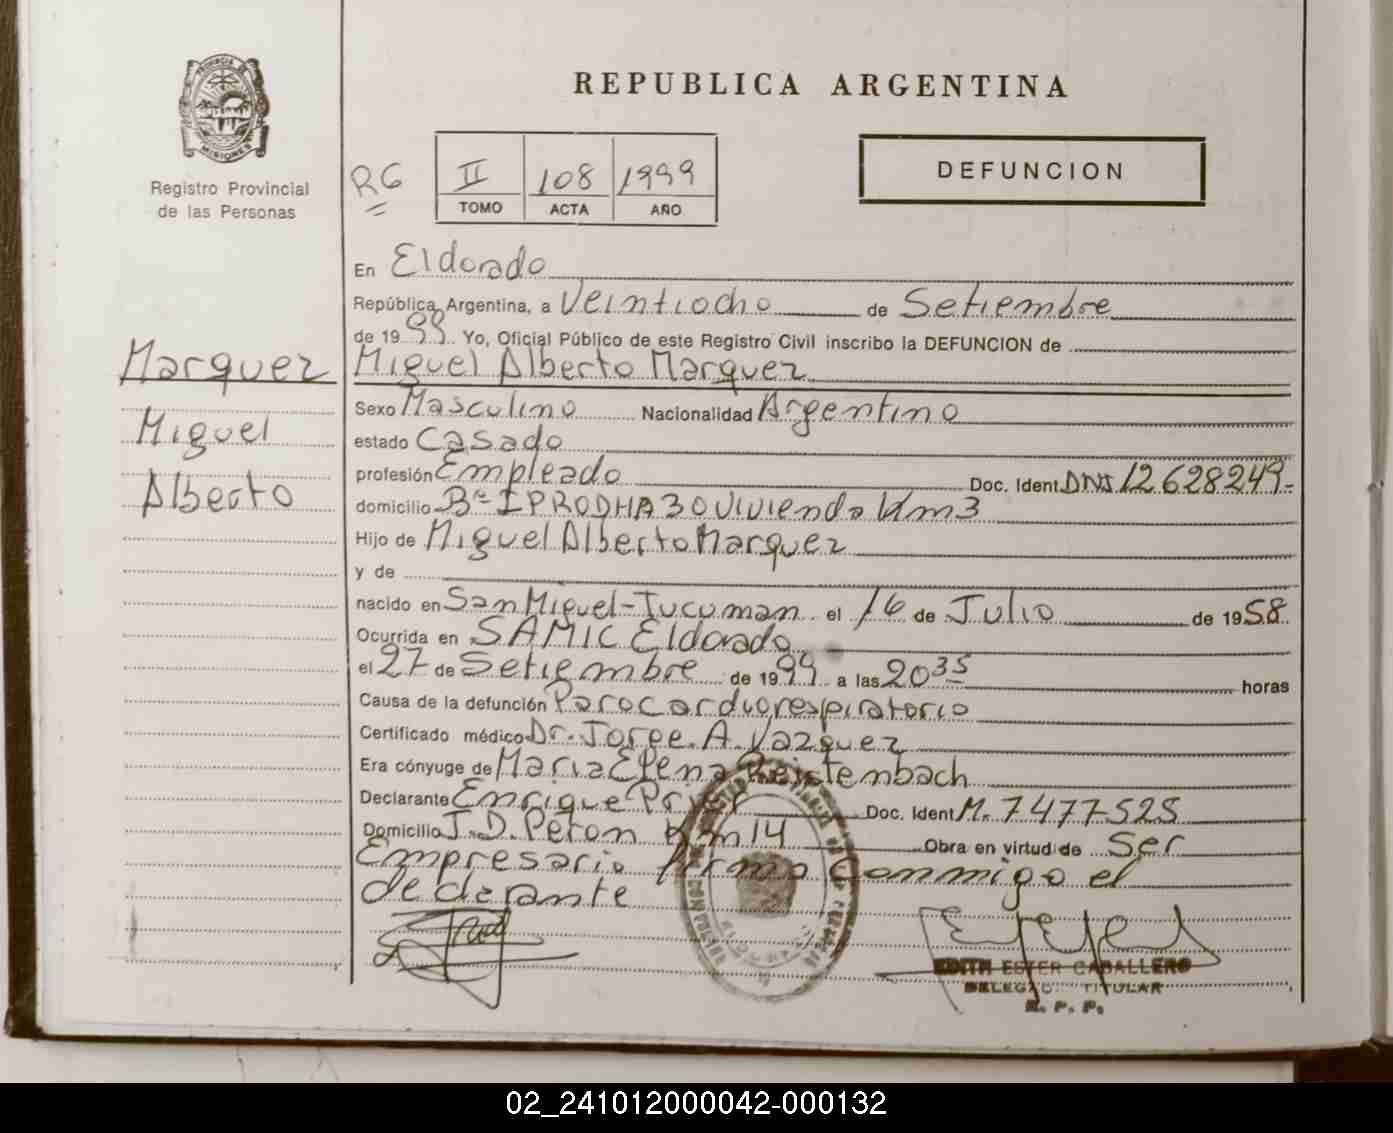 PROVINCIA DE
MISIONES
Registro Provincial
de las Personas
REPUBLICA ARGENTINA
RG
II 108 1999
TOMO ACTA AÑO
DEFUNCION
En Eldorado
República Argentina, a Veintiocho de Setiembre
de 1999 Yo, Oficial Público de este Registro Civil inscribo la DEFUNCION de
Miguel Alberto Marquez
Marquez
Miguel
Alberto
Sexo Masculino Nacionalidad Argentino
estado Casado
profesión Empleado Doc. Ident DNI 12628249-
domicilio Bº IPRODHA 30 Vivienda Km3
Hijo de Miguel Alberto Marquez
y de
nacido en San Miguel-Tucuman el 16 de Julio de 1958
Ocurrida en SAMIC Eldorado
el 27 de Setiembre de 1999 a las 20 35 horas
Causa de la defunción Parocardiorespiratorio
Certificado médico Dr. Jorge. A. Vazquez
Era cónyuge de Maria Elena
Declarante Enrique Doc. Ident M. 7477525
Domicilio J. D. Peron Km 14 Obra en virtud de Ser
Empresario firma conmigo el
declarante
EDITH ESTER CABALLERO
DELEGAD. TITULAR
R. P. P.
02_241012000042-000132